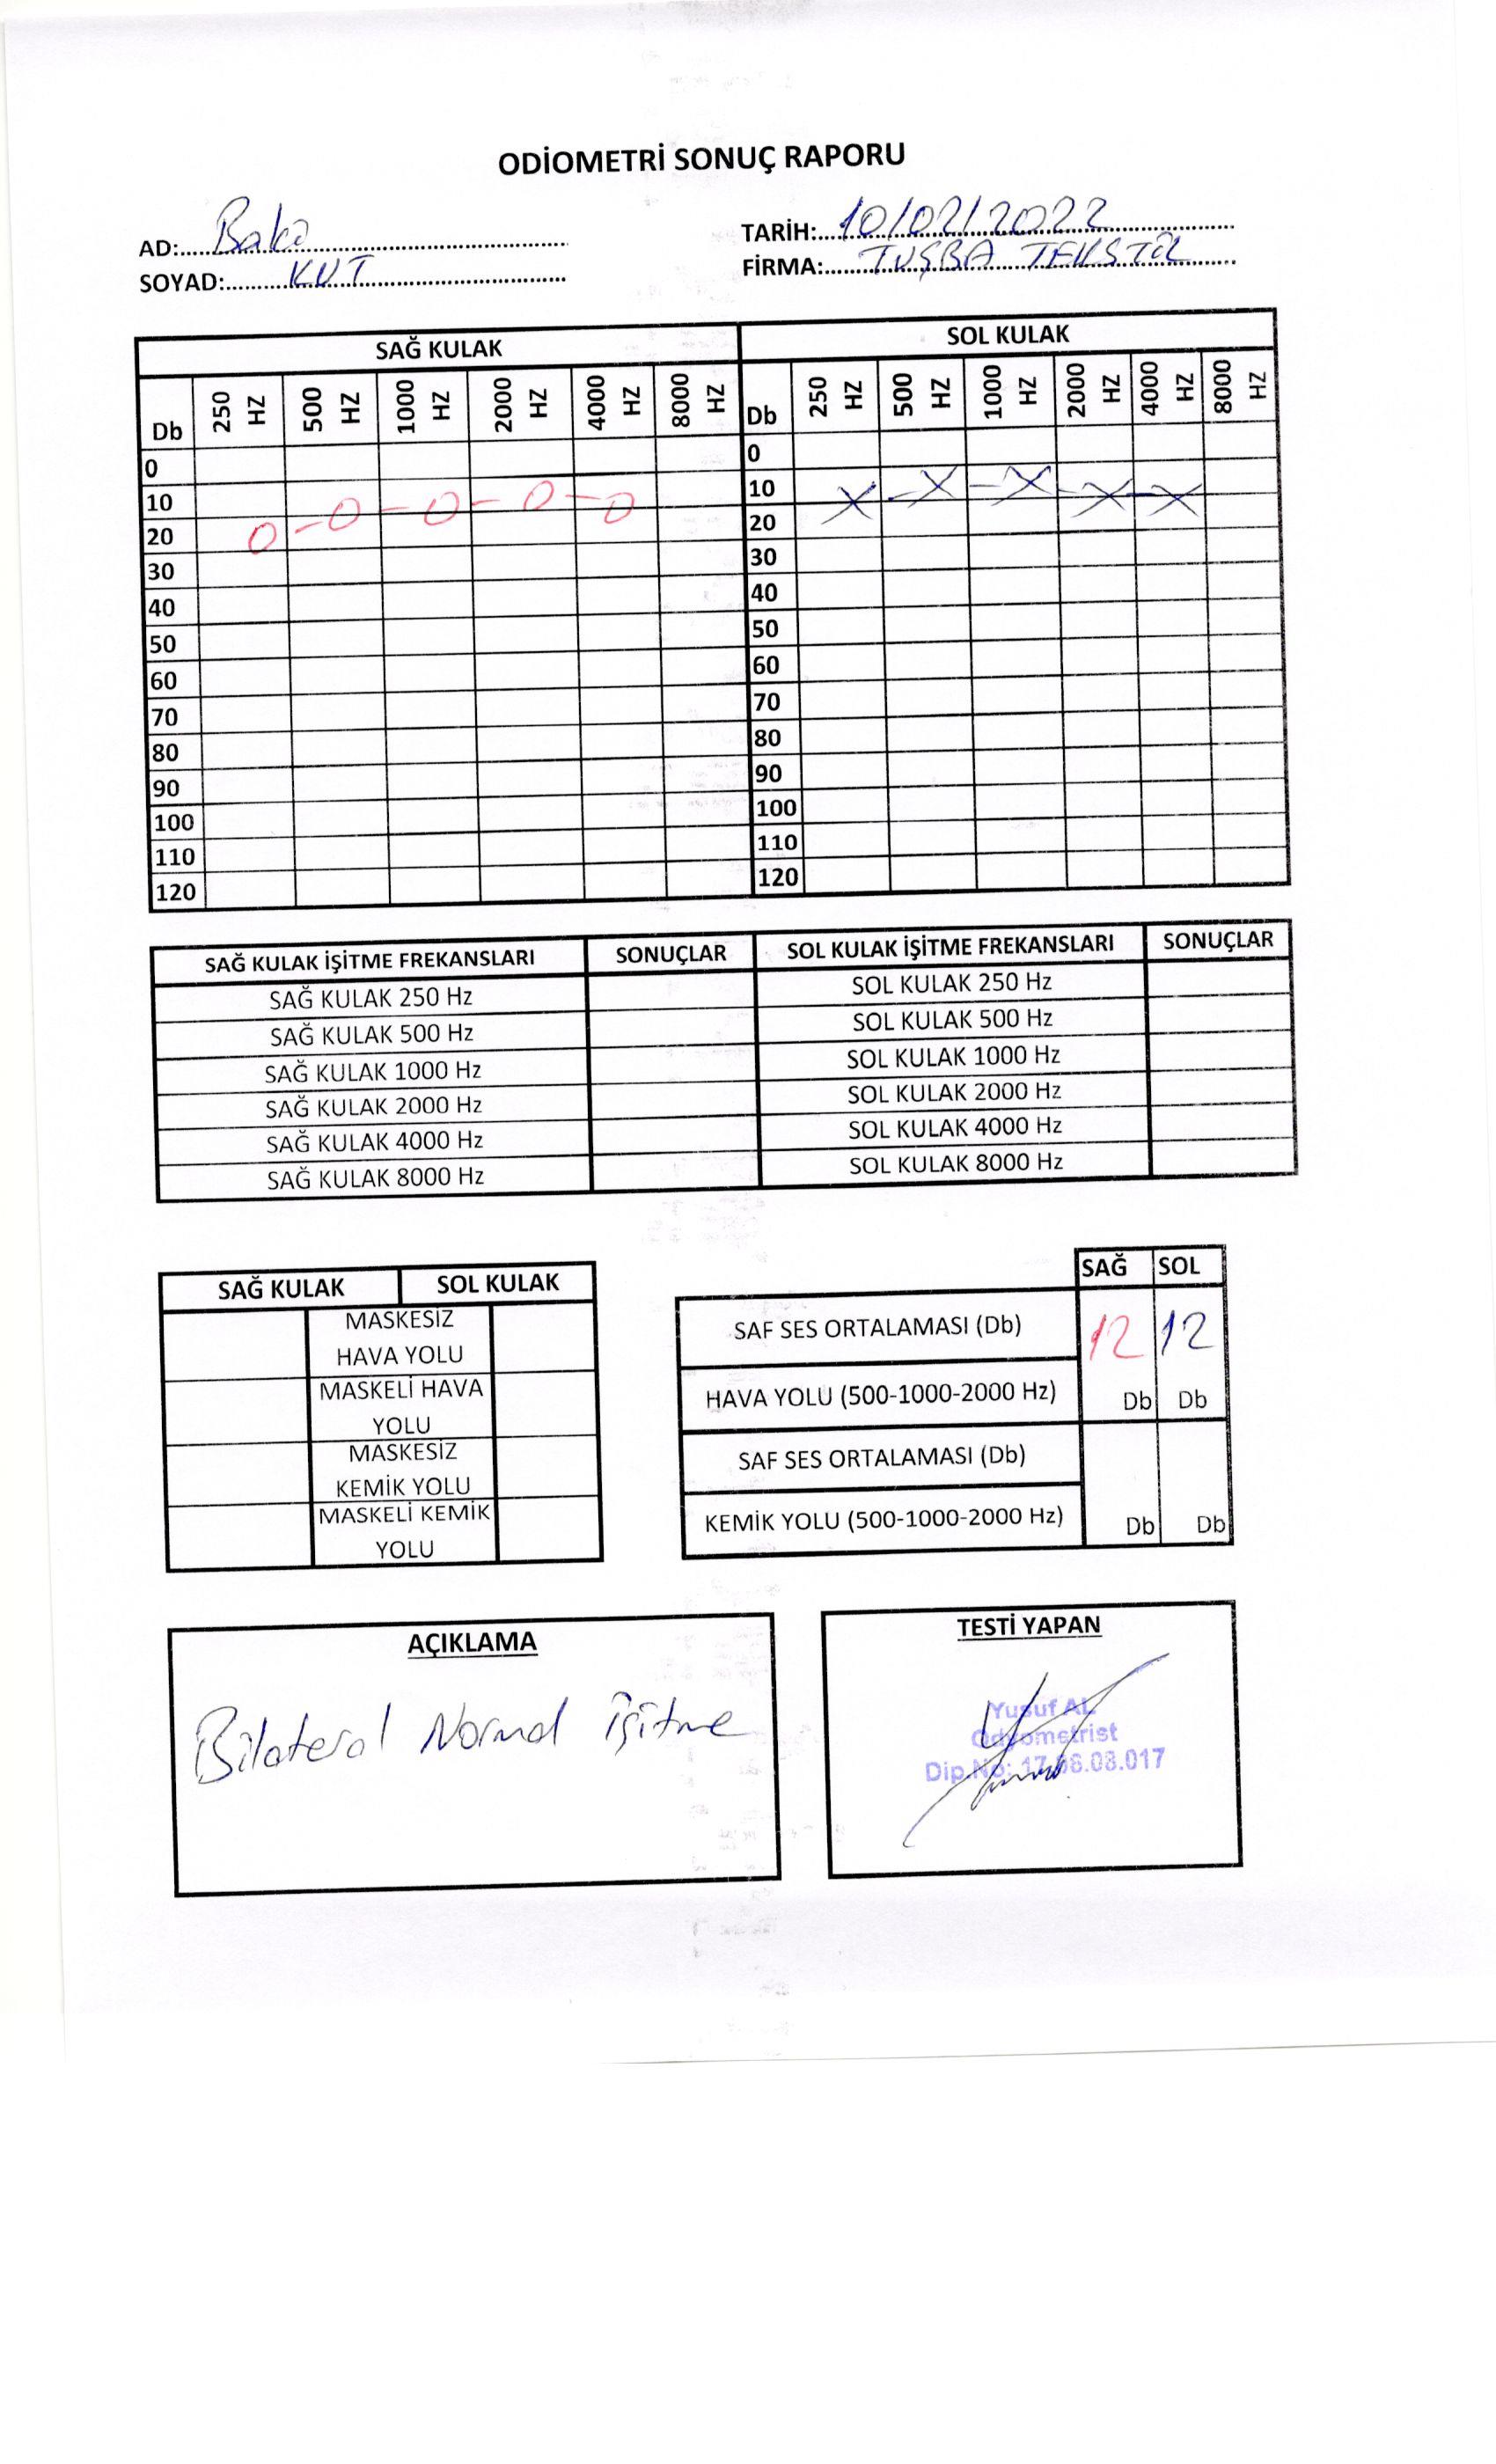 ODİOMETRİ SONUÇ RAPORU
AD: Baki
SOYAD: KUT
TARİH: 10/02/2022
FİRMA: TUŞBA TEKSTİL
SAĞ KULAK SOL KULAK
Db 250 HZ 500 HZ 1000 HZ 2000 HZ 4000 HZ 8000 HZ Db 250 HZ 500 HZ 1000 HZ 2000 HZ 4000 HZ 8000 HZ
0 0
10 10
20 20
30 30
40 40
50 50
60 60
70 70
80 80
90 90
100 100
110 110
120 120
SAĞ KULAK İŞİTME FREKANSLARI SONUÇLAR SOL KULAK İŞİTME FREKANSLARI SONUÇLAR
SAĞ KULAK 250 Hz SOL KULAK 250 Hz
SAĞ KULAK 500 Hz SOL KULAK 500 Hz
SAĞ KULAK 1000 Hz SOL KULAK 1000 Hz
SAĞ KULAK 2000 Hz SOL KULAK 2000 Hz
SAĞ KULAK 4000 Hz SOL KULAK 4000 Hz
SAĞ KULAK 8000 Hz SOL KULAK 8000 Hz
SAĞ KULAK SOL KULAK
MASKESİZ
HAVA YOLU
MASKELİ HAVA
YOLU
MASKESİZ
KEMİK YOLU
MASKELİ KEMİK
YOLU
SAĞ SOL
SAF SES ORTALAMASI (Db) 12 12
HAVA YOLU (500-1000-2000 Hz) Db Db
SAF SES ORTALAMASI (Db)
KEMİK YOLU (500-1000-2000 Hz) Db Db
AÇIKLAMA
Bilateral Normal işitme
TESTİ YAPAN
Yusuf AL
Odyometrist
Dip.No: 17.06.08.017